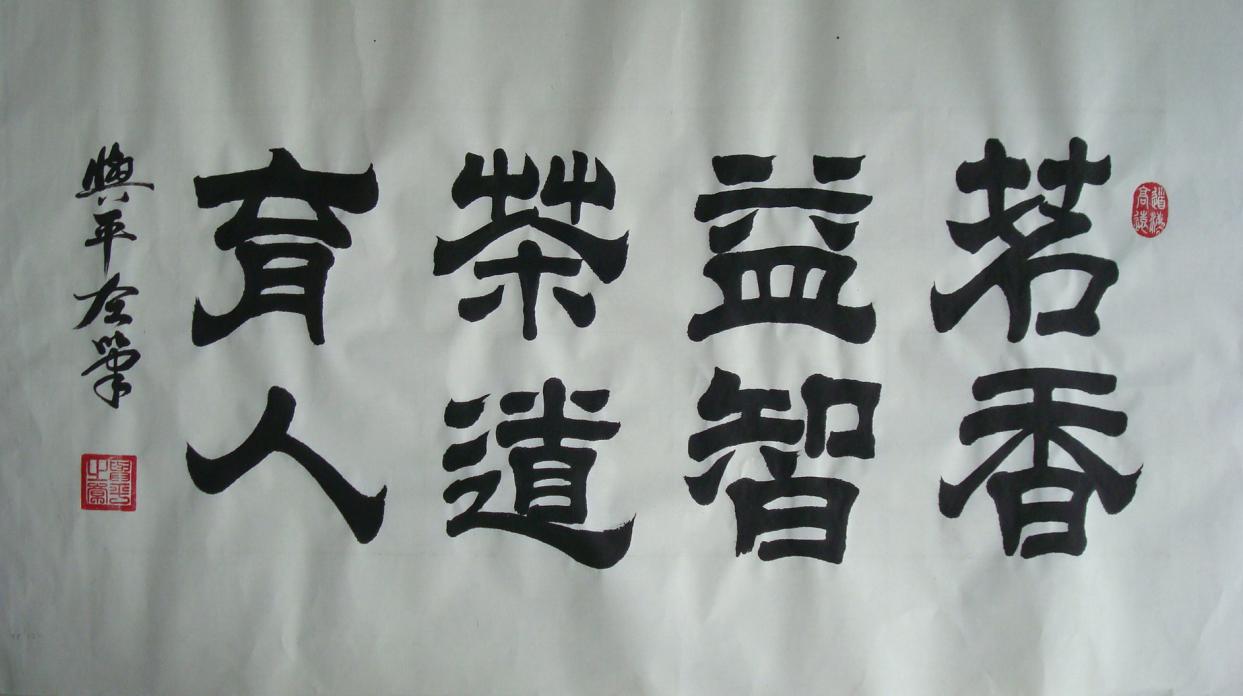 茗香
益智
茶道
育人
興平左筆